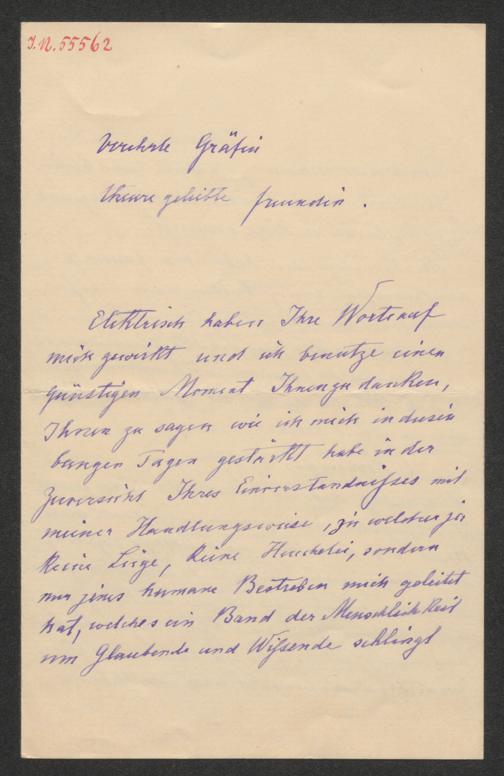 J.N. 55562
Verehrte Gräfin
theure geliebte Freundin.
Elektrisch haben Ihre Worte auf
mich gewirkt und ich benutze einen
günstigen Moment Ihnen zu danken,
Ihnen zu sagen wie ich mich in diesen
bangen Tagen gestärkt habe in der
Zuversicht Ihres Einverständnißes mit
meiner Handlungsweise, zu welcher ja
keine Lüge, keine Heuchelei, sondern
nur jenes humane Bestreben mich geleitet
hat, welches ein Band der Menschlichkeit
um Glaubende und Wißende schlingt